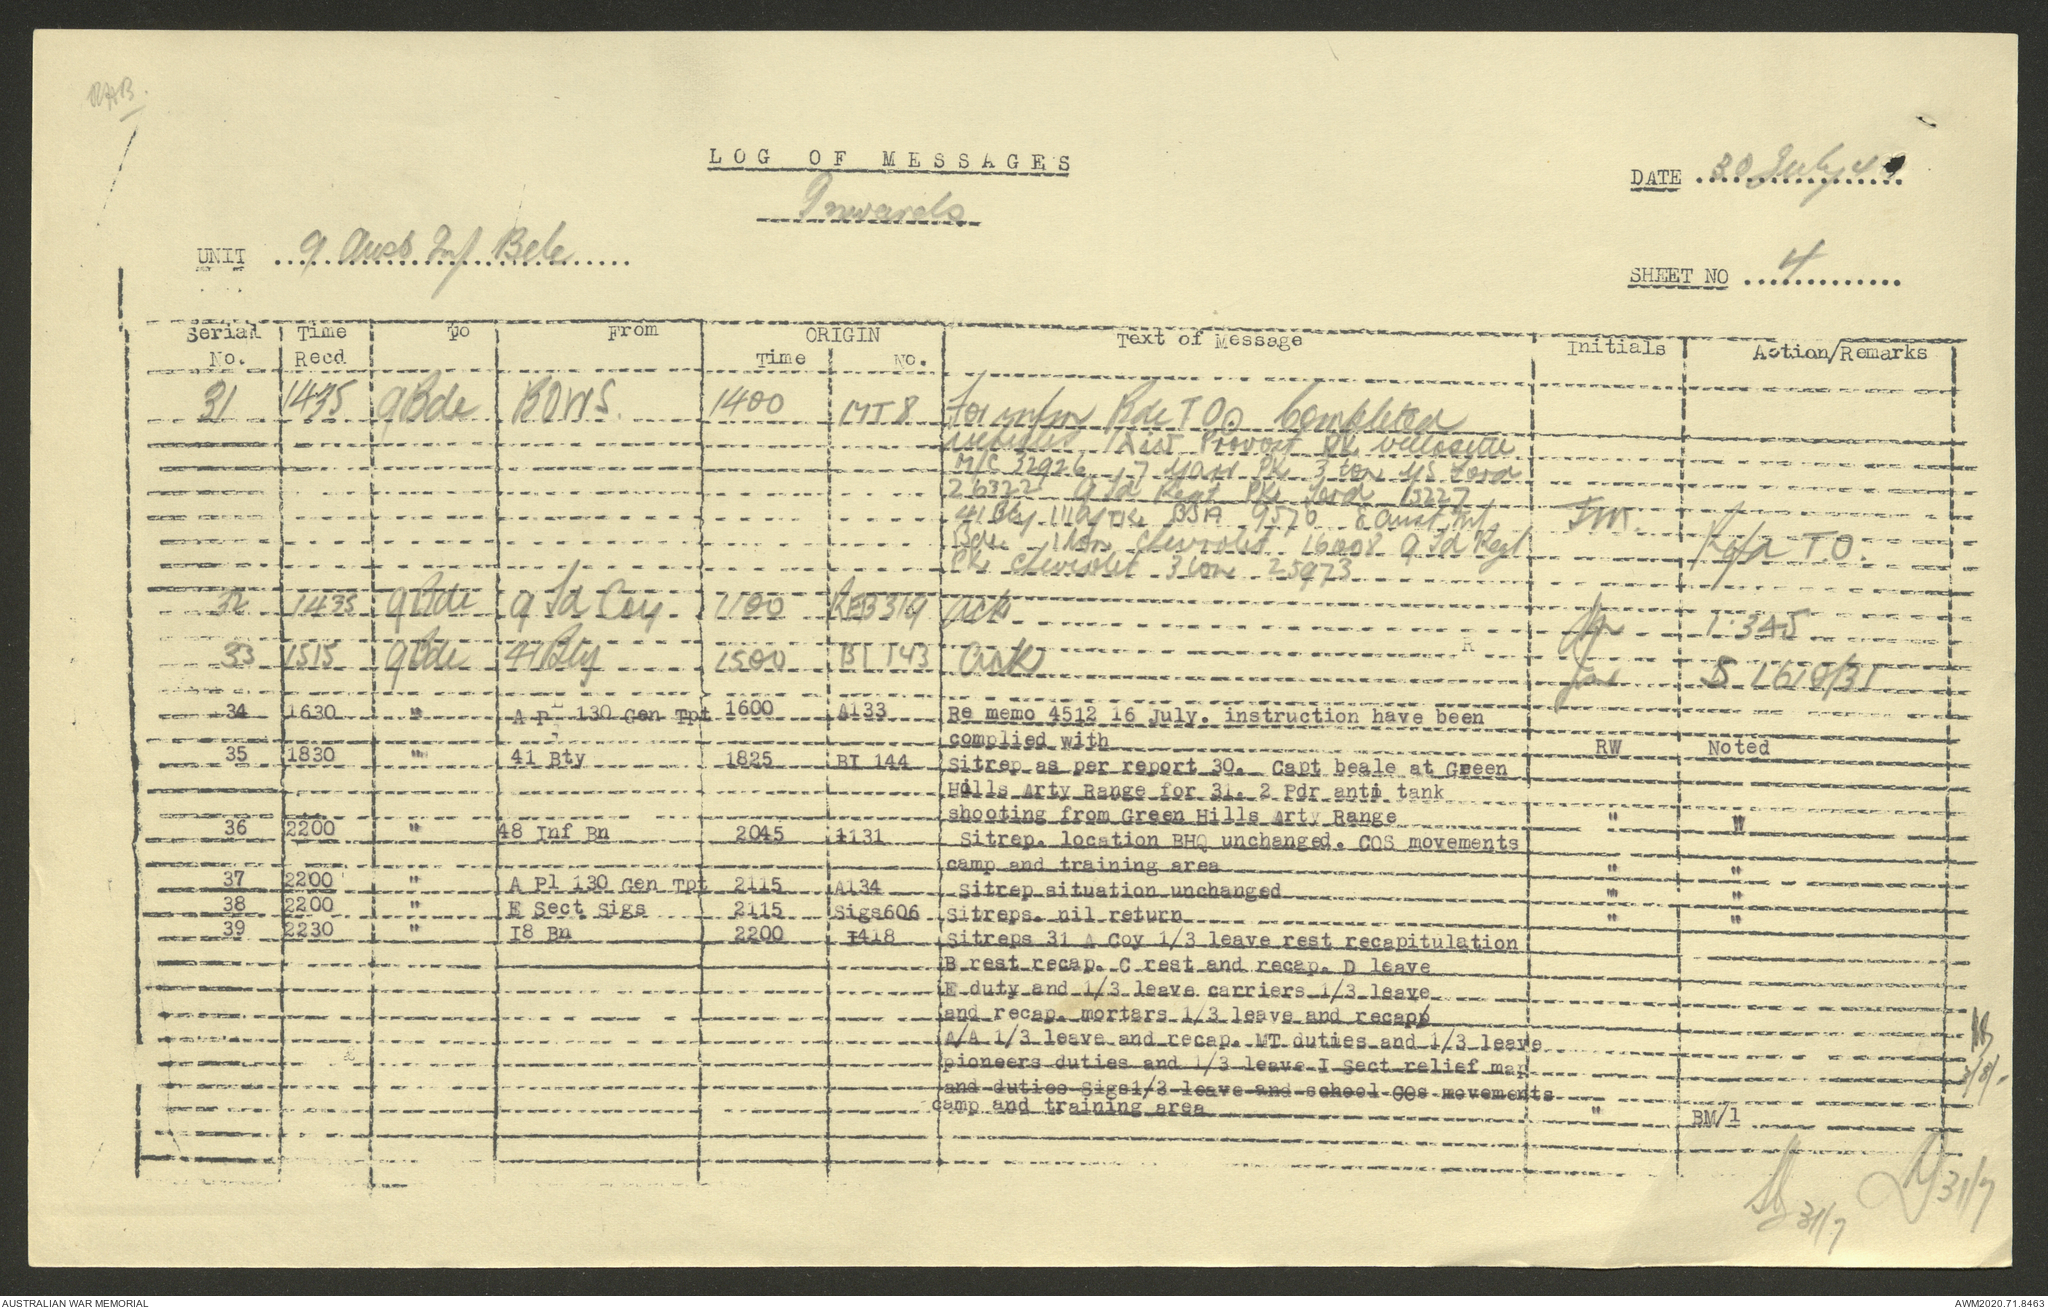 RAB.
LOG OF MESSAGES
Inwards
DATE 30 July 4
UNIT 9 Aust Inf Bde
SHEET NO 4
Serial No. Time Recd To From ORIGIN Time No. Text of Message Initials Action/Remarks
31 1435 9 Bde BOWS. 1400 MT8 For Bde TO. Completed
Provost
M/C 32926 PK 3 ton Ford
26322 9 Fd Regt PK Ford
41 Bty 9570 Aust Inf
Bde Chevrolet 9 Fd Regt T.O.
PK Chevrolet 3 ton 25973
32 1435 9 Bde 9 Fd Coy 1100 REB319 Ack 1345
33 1515 9 Bde 41 Bty 1500 BT 143 Ack
34 1630 " A Pl 130 Gen Tpt 1600 A133 Re memo 4512 16 July. instruction have been
complied with RW Noted
35 1830 " 41 Bty 1825 BT 144 Sitrep as per report 30. Capt beale at Green
Hills Arty Range for 31. 2 Pdr anti tank
shooting from Green Hills Arty Range " "
36 2200 " 48 Inf Bn 2045 1131 Sitrep. location BHQ unchanged. COS movements
camp and training area
37 2200 " A Pl 130 Gen Tpt 2115 A134 Sitrep situation unchanged " "
38 2200 " E Sect Sigs 2115 Sigs606 Sitreps. nil return " "
39 2230 " I8 Bn 2200 I418 Sitreps 31 A Coy 1/3 leave rest recapitulation
B rest recap. C rest and recap. D leave
E duty and 1/3 leave carriers 1/3 leave
and recap. mortars 1/3 leave and recapp
A/A 1/3 leave and recap. MT duties and 1/3 leave
pioneers duties and 1/3 leave I Sect relief map
and duties Sigs1/3 leave and school COs movements
camp and training area " BM/1
31/7
31/7
AUSTRALIAN WAR MEMORIAL
AWM2020.71.8463